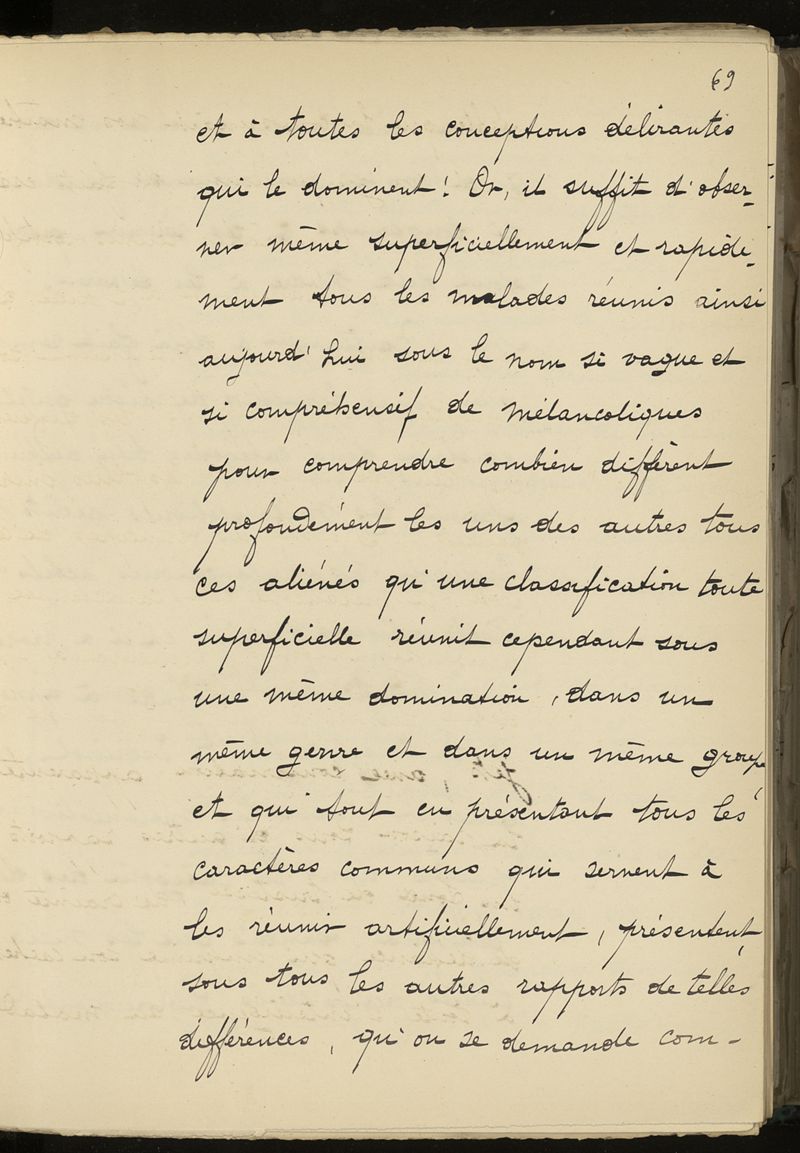 69
et à toutes les conceptions délirantes
qui le dominent! Or, il suffit d'obser-
ver même superficiellement et rapide-
ment tous les malades réunis ainsi
aujourd'hui sous le nom si vague et
si compréhensif de mélancoliques
pour comprendre combien diffèrent
profondément les uns des autres tous
ces aliénés qu'une classification toute
superficielle réunit cependant sous
une même domination, dans un
même genre et dans un même groupe,
et qui tout en présentant tous les
caractères communs qui servent à
les réunir artificiellement, présentent,
sous tous les autres rapports de telles
différences, qu'on se demande com-